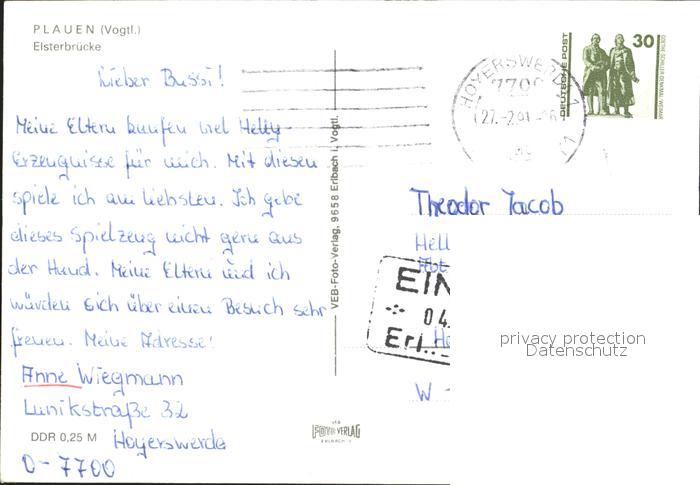 PLAUEN (Vogtl.)
Elsterbrücke
Lieber Bussi!
Meine Eltern kaufen viel Helly-
Erzeugnisse für mich. Mit diesen
spiele ich am liebsten. Ich gebe
dieses Spielzeug nicht gern aus
der Hand. Meine Eltern und ich
würden sich über einen Besuch sehr
freuen. Meine Adresse:
Anne Wiegmann
Lunikstraße 32
DDR 0,25 M Hoyerswerda
O-7700
VEB-Foto-Verlag, 9658 Erlbach i. Vogtl.
VERLAG
HOYERSWERDA 1
7700
27.-2.91
DEUTSCHE POST
30
GOETHE-SCHILLER-DENKMAL WEIMAR
Theodor Jacob
Hell
EIN
04.
Erl..
W -
privacy protection
Datenschutz